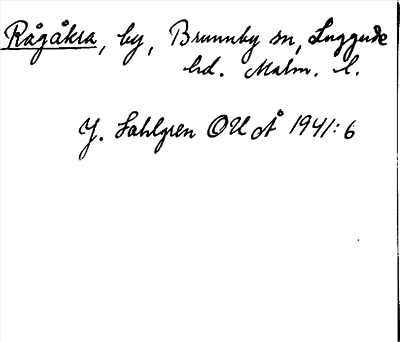 Rågåkra, by, Brunnby sn, Luggude
hd. Malm. l.
J. Sahlgren OUÅ 1941:6